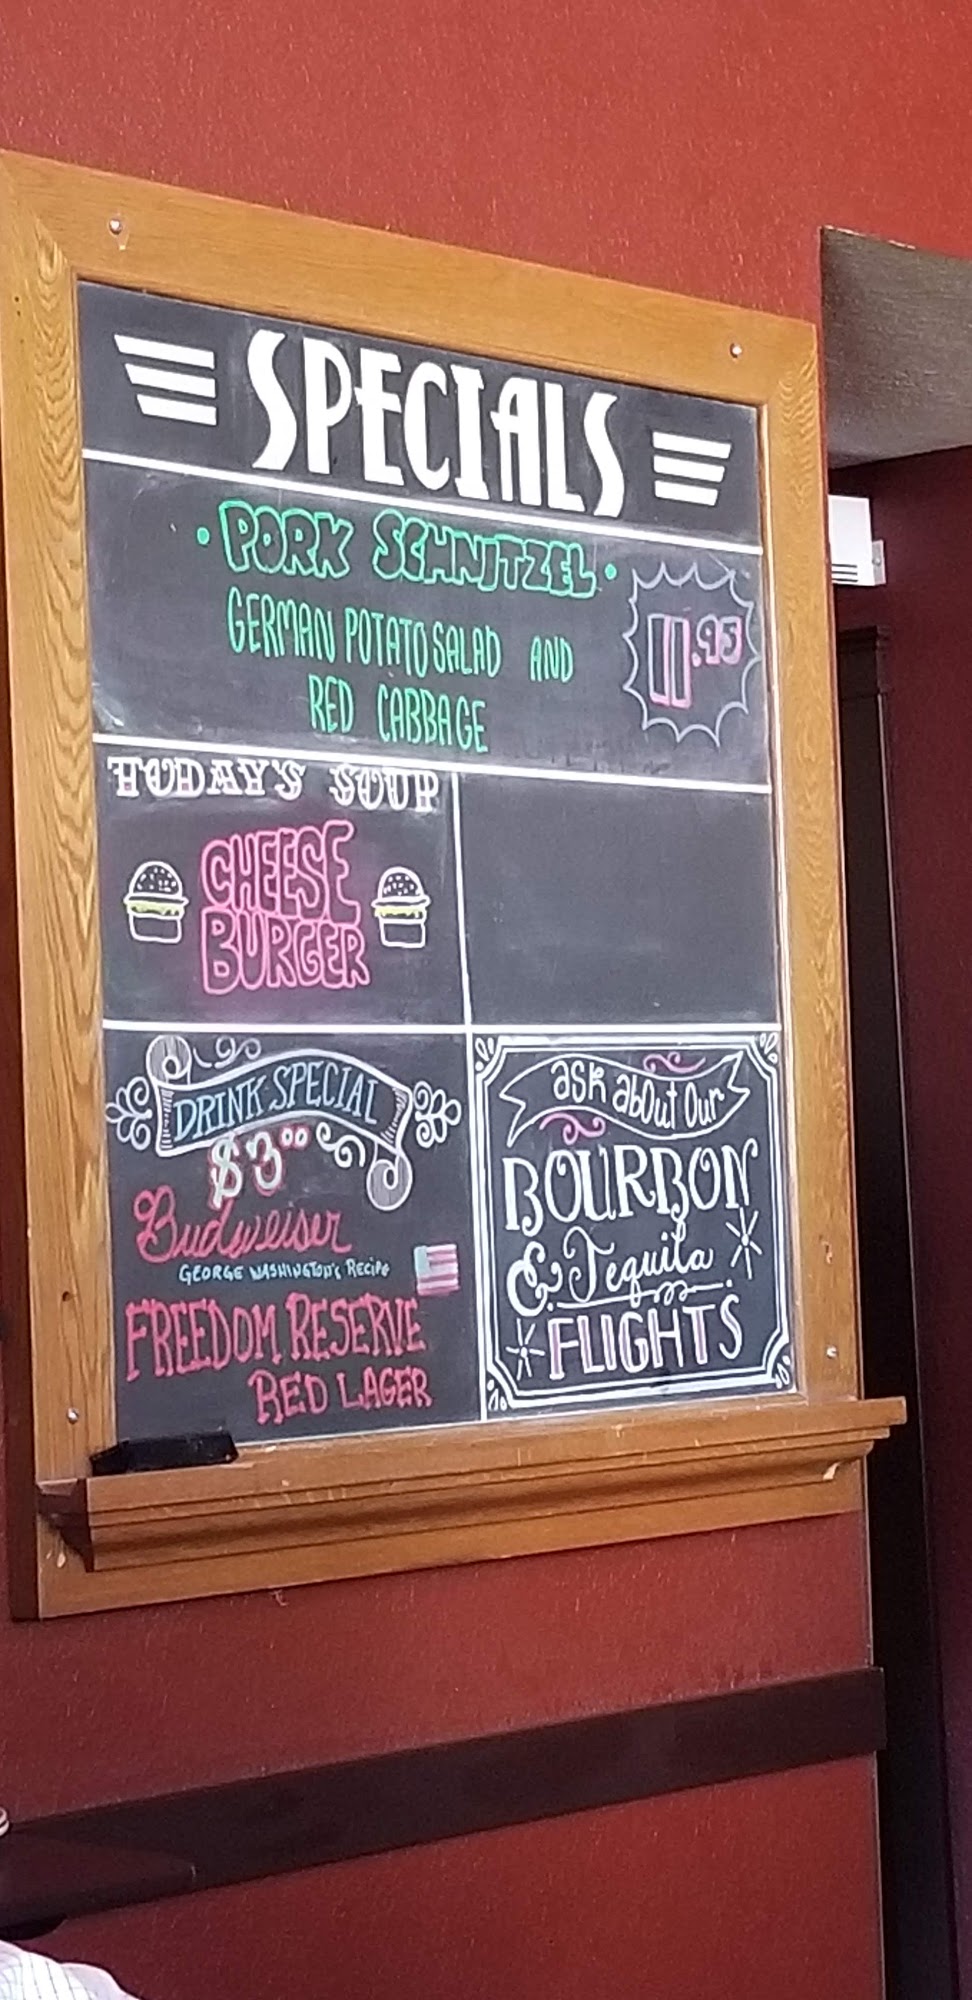 SPECIALS
• PORK SCHNITZEL •
GERMAN POTATO SALAD AND
RED CABBAGE
11.95
TODAY'S SOUP
CHEESE
BURGER
DRINK SPECIAL
$3.00
Budweiser
GEORGE WASHINGTON'S RECIPE
FREEDOM RESERVE
RED LAGER
ask about our
BOURBON
& Tequila
FLIGHTS